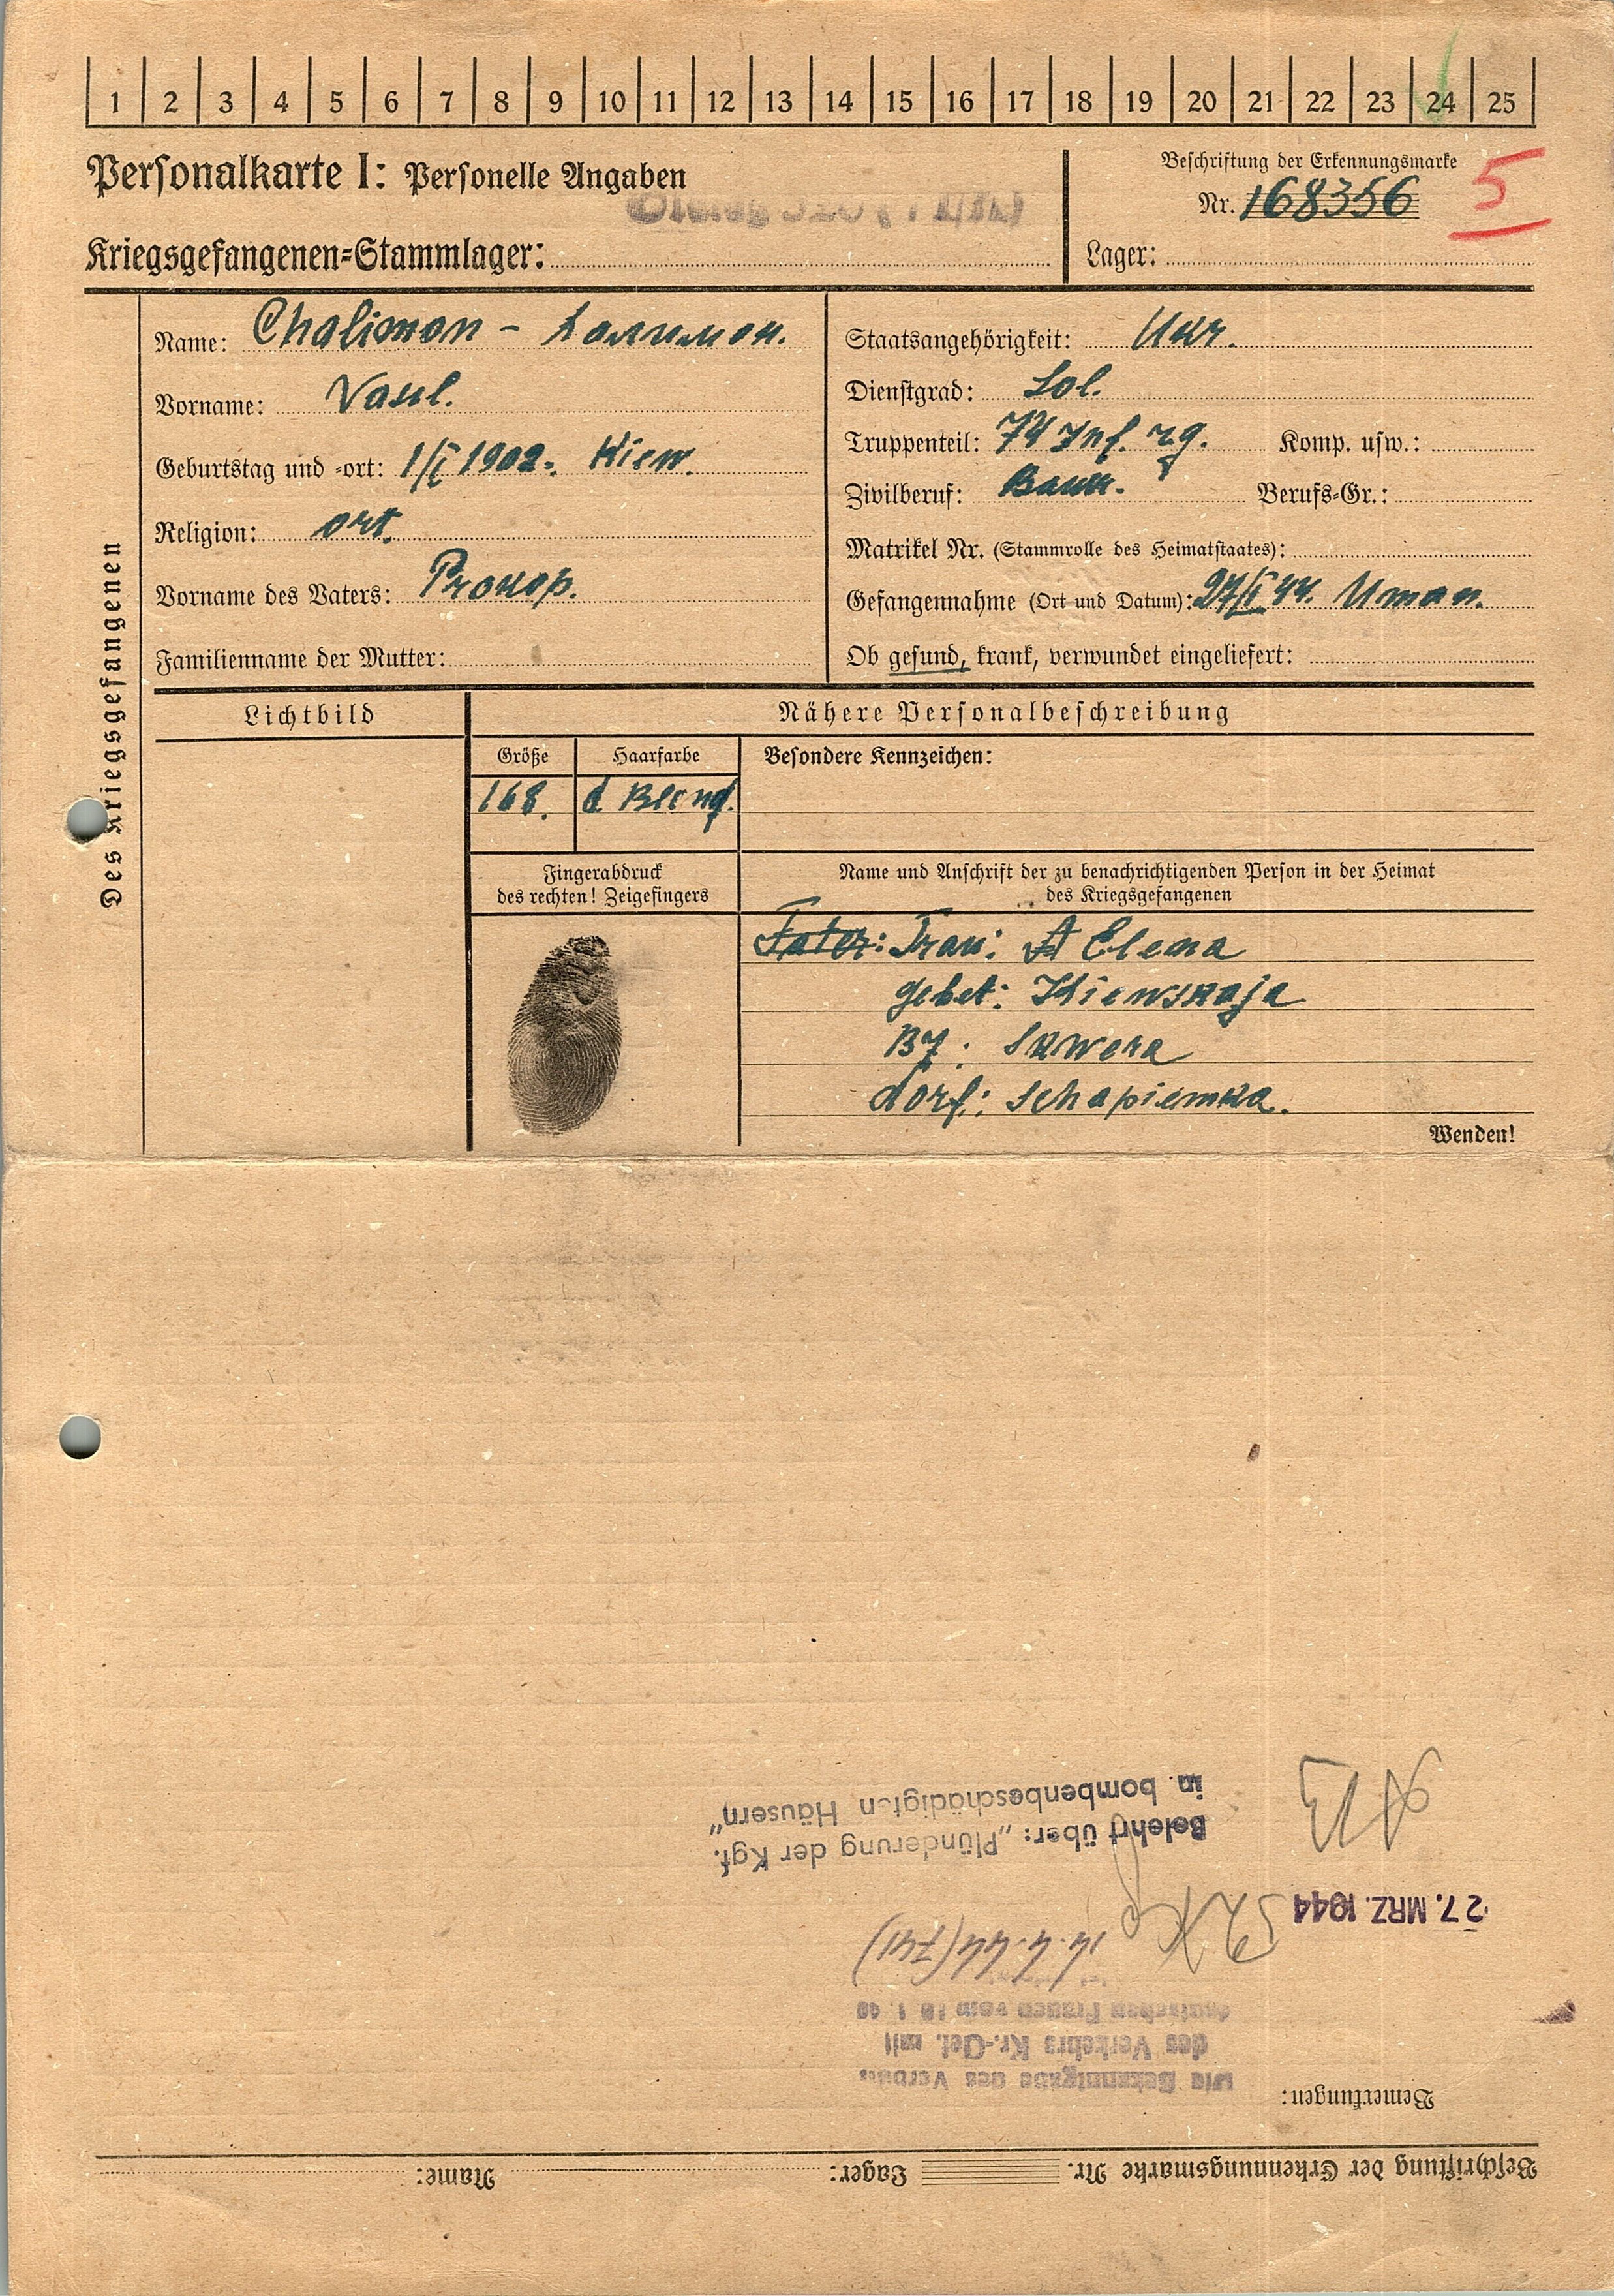 1 2 3 4 5 6 7 8 9 10 11 12 13 14 15 16 17 18 19 20 21 22 23 24 25
Personalkarte I: Personelle Angaben
Beschriftung der Erkennungsmarke
Nr. 168356
5
Kriegsgefangenen=Stammlager:
Lager:
Des Kriegsgefangenen
Name: Chalimon - Халимон.
Vorname: Vasil.
Geburtstag und -ort: 1/I 1902. Kiew.
Religion: ort.
Vorname des Vaters: Prokop.
Familienname der Mutter:
Staatsangehörigkeit: Ukr.
Dienstgrad: Sol.
Truppenteil: 74 Inf. rg. Komp. usw.:
Zivilberuf: Bauer. Berufs-Gr.:
Matrikel Nr. (Stammrolle des Heimatstaates):
Gefangennahme (Ort und Datum): 27/I 44. Uman.
Ob gesund, krank, verwundet eingeliefert:
Lichtbild
Nähere Personalbeschreibung
Größe Haarfarbe Besondere Kennzeichen:
168. d. Blond.
Fingerabdruck
des rechten! Zeigefingers
Name und Anschrift der zu benachrichtigenden Person in der Heimat
des Kriegsgefangenen
Fater: Frau: Elena
gebet: Kiewskaja
Bz: Skwera
dorf: Schapiewka.
Wenden!
Beschriftung der Erkennungsmarke Nr. Lager: Name:
Bemerkungen:
des Verkehrs Kr.-Gef. mit
deutschen Frauen vom
14.4.44 (741)
27. MRZ. 1944
Belehrt über: „Plünderung der Kgf.
in bombenbeschädigten Häusern"